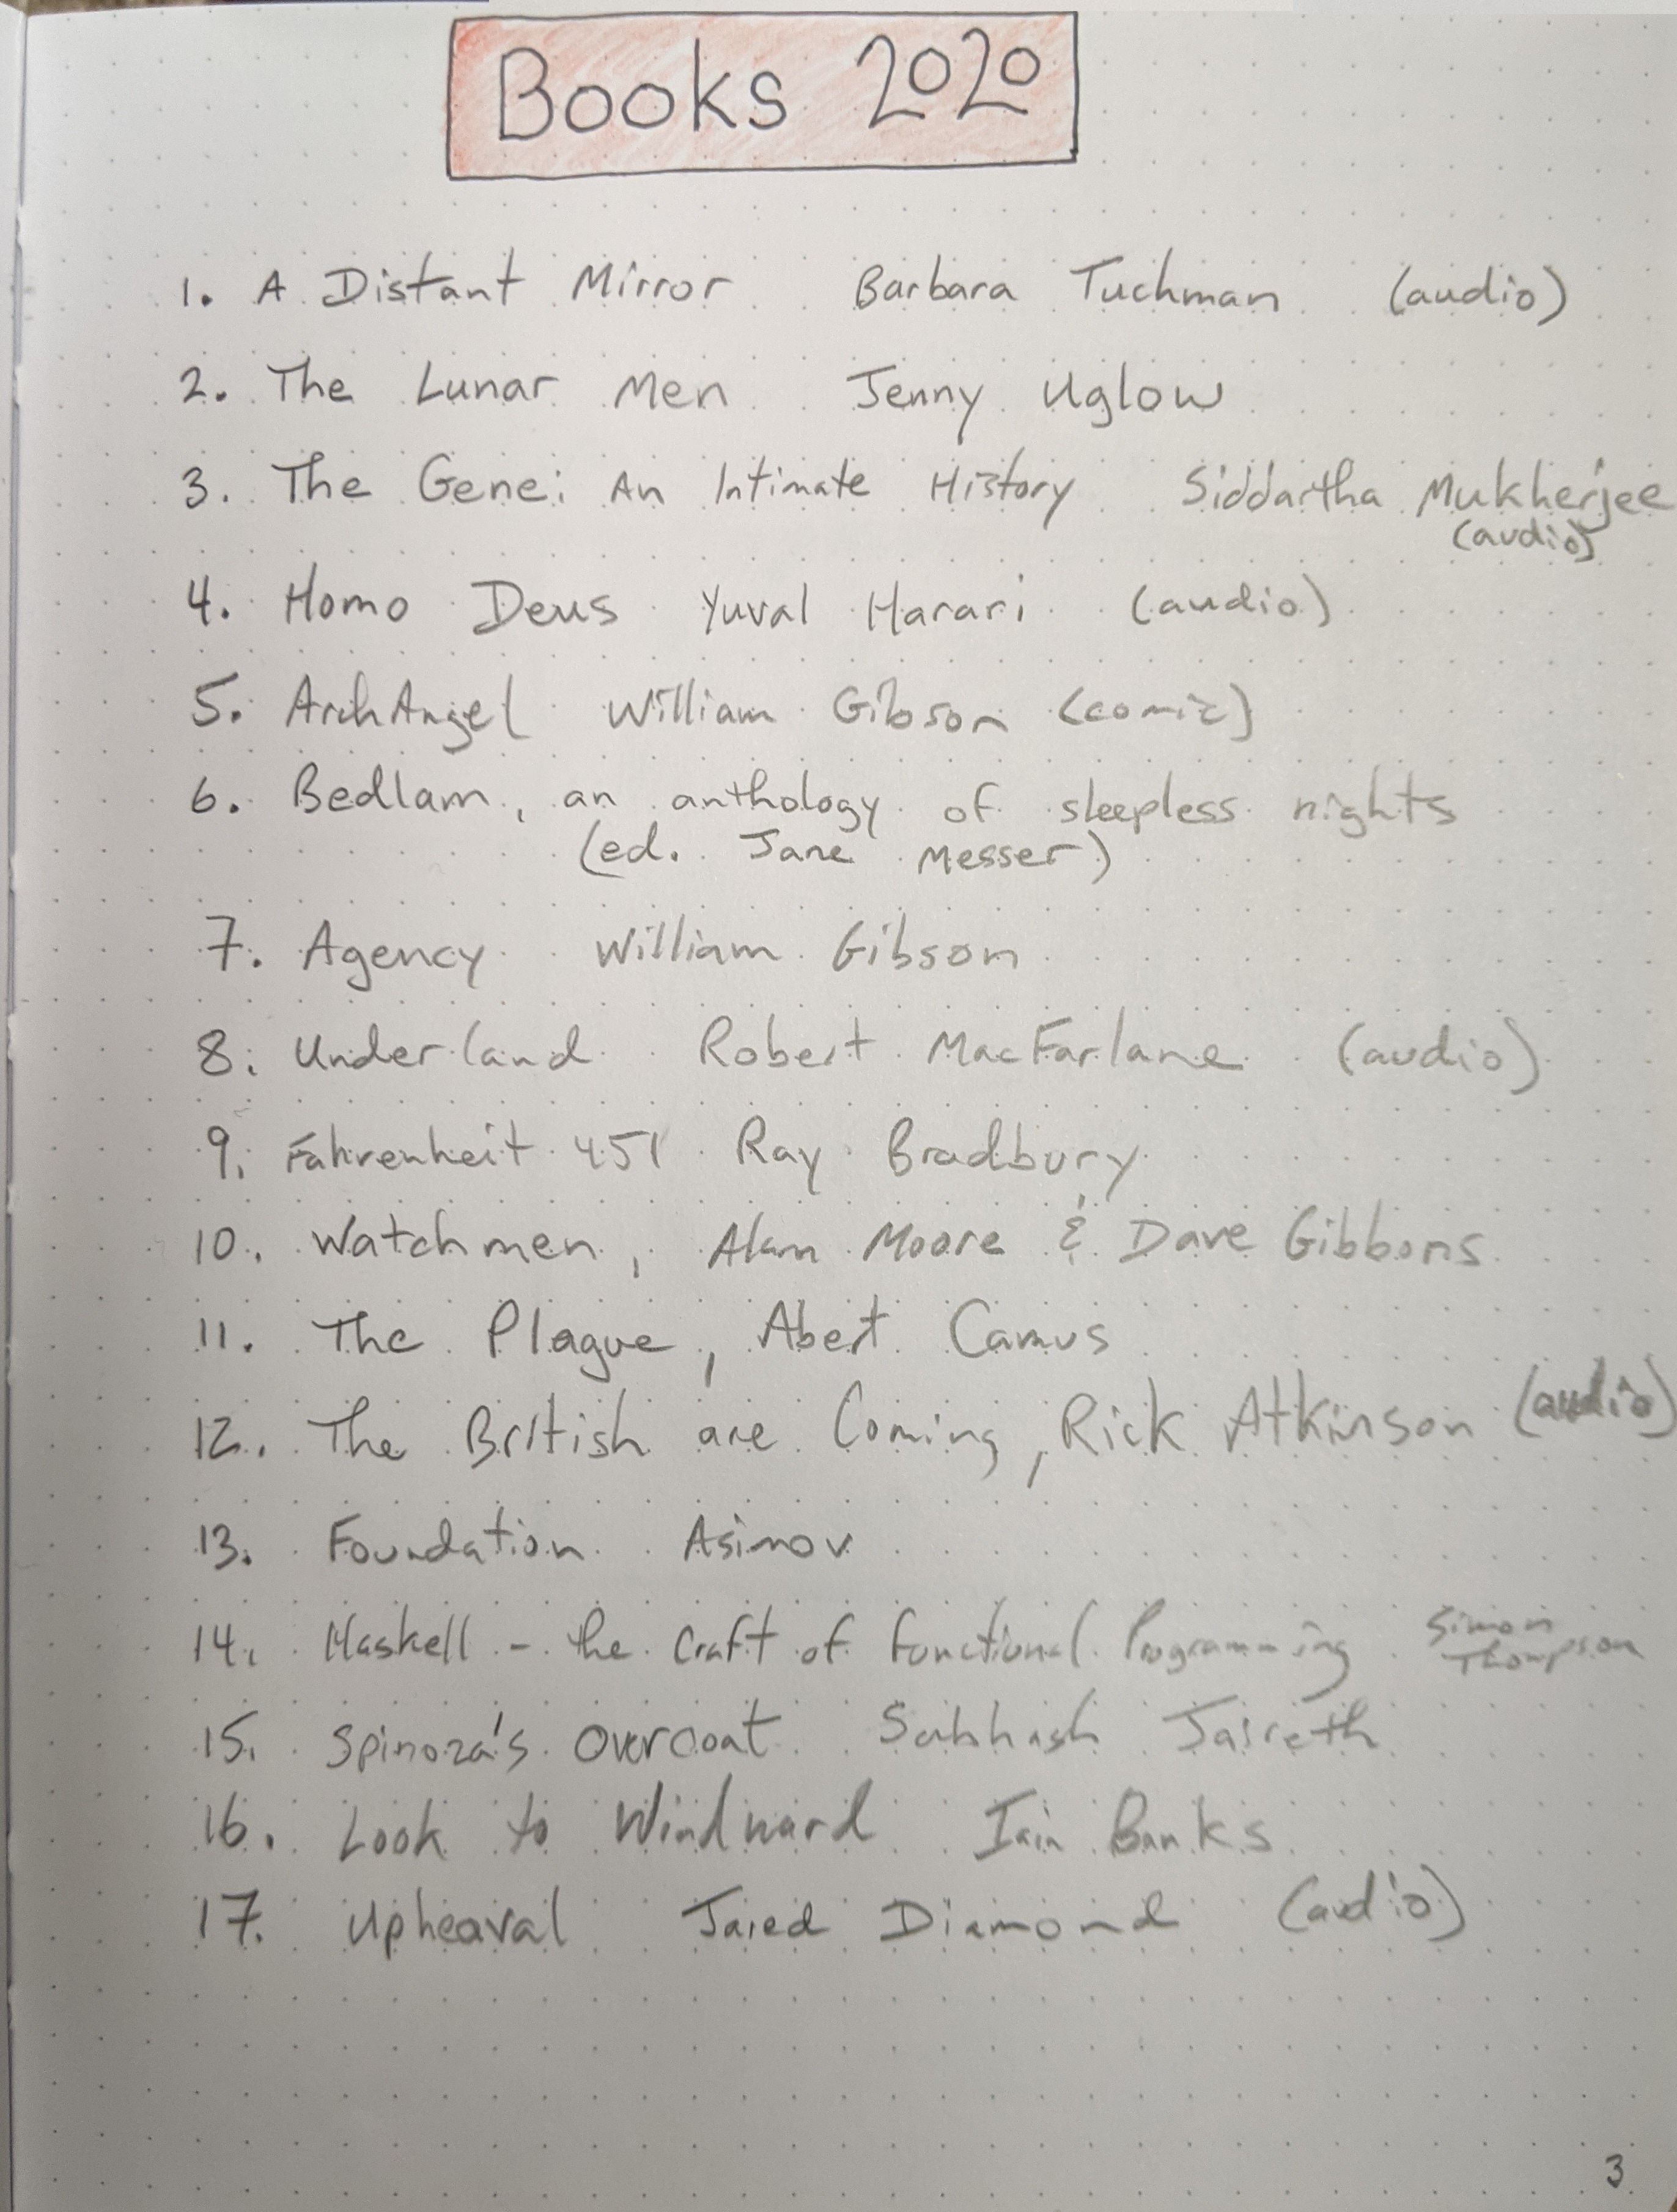 Books 2020
1. A Distant Mirror Barbara Tuchman (audio)
2. The Lunar Men Jenny Uglow
3. The Gene: An Intimate History Siddartha Mukherjee
(audio)
4. Homo Deus Yuval Harari (audio)
5. ArchAngel William Gibson (comic)
6. Bedlam, an anthology of sleepless nights
(ed. Jane Messer)
7. Agency William Gibson
8. Underland Robert MacFarlane (audio)
9. Fahrenheit 451 Ray Bradbury
10. Watchmen, Alan Moore & Dave Gibbons
11. The Plague, Abert Camus
12. The British are Coming, Rick Atkinson (audio)
13. Foundation Asimov
14. Haskell - the Craft of Functional Programming Simon
Thompson
15. Spinoza's Overcoat Subhash Jaireth
16. Look to Windward Iain Banks
17. Upheaval Jared Diamond (audio)
3